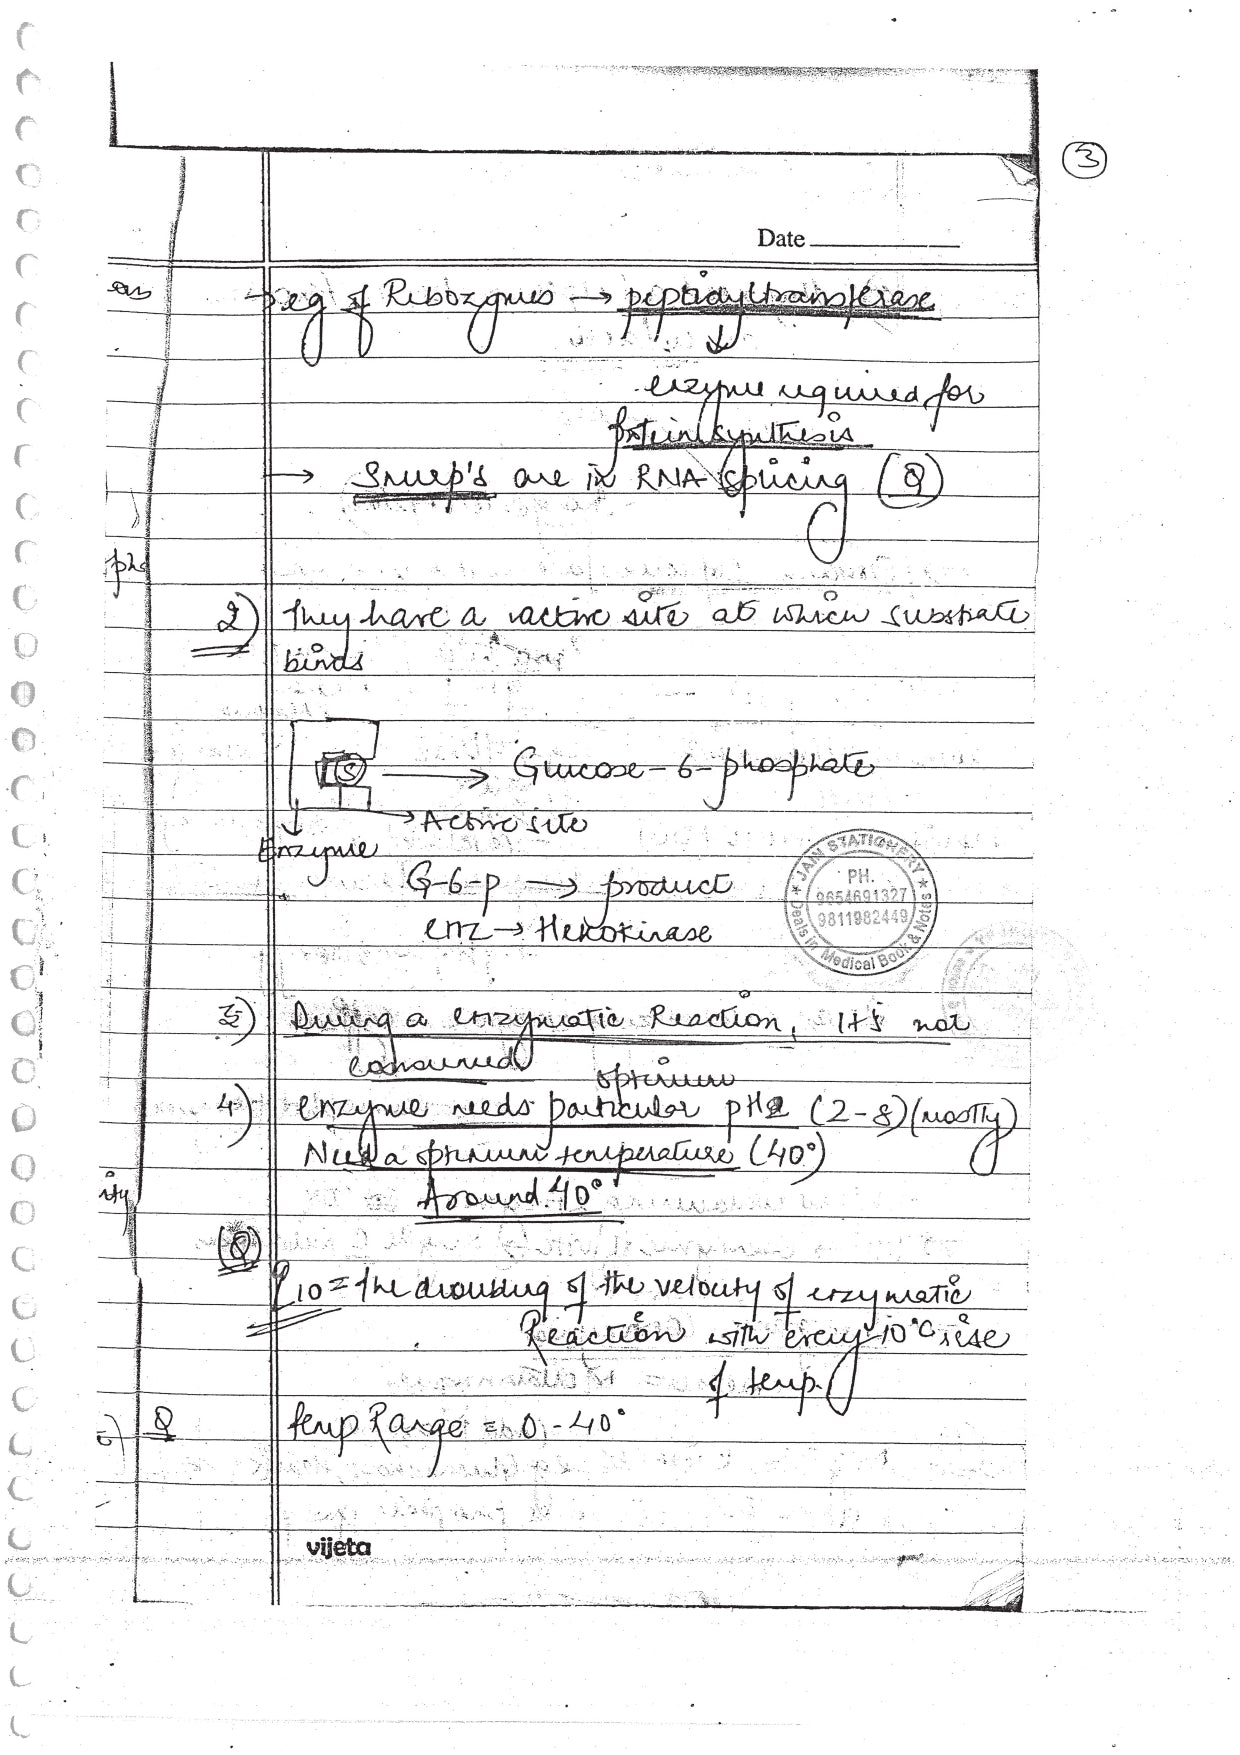 3
Date
→ eg of Ribozymes → peptidyltransferase
↓
enzyme required for
protein synthesis
→ Snurp's are in RNA splicing (Q)
pho
2) They have a active site at which substrate
binds
S → Glucose-6-phosphate
→ Active site
Enzyme
G-6-P → product
enz → Hexokinase
JAIN STATIONERY
PH.
9654691327
9811982449
Deals in Medical Book & Notes
3) During a enzymatic Reaction, It's not
consumed
optimum
4) enzyme needs particular pH (2-8) (mostly)
Need a optimum temperature (40°)
Around 40°
ity
(Q)
Q10 = the doubling of the velocity of enzymatic
Reaction with every 10°C rise
of temp.
Q temp Range = 0 - 40°
vijeta